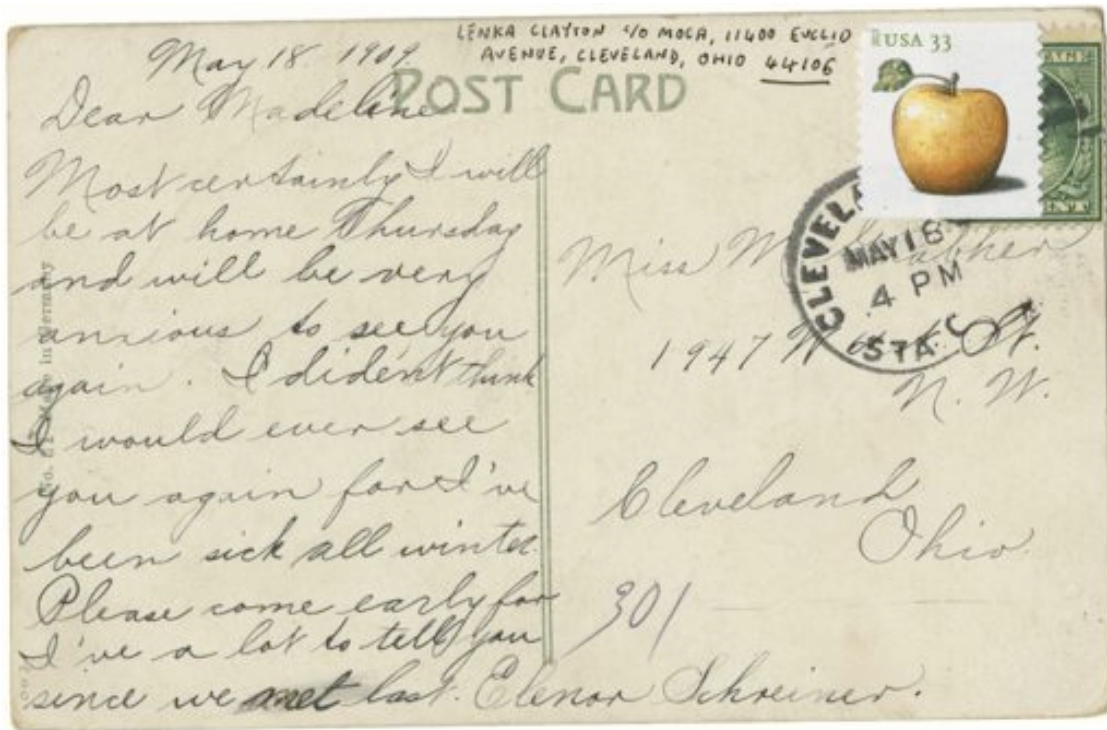 LENKA CLAYTON c/o MOCA, 11400 EUCLID
AVENUE, CLEVELAND, OHIO 44106
USA 33
POST CARD
May 18 1909
Dear Madeline
Most certainly I will
be at home Thursday
and will be very
anxious to see you
again. I dident think
I would ever see
you again for I've
been sick all winter.
Please come early for
I've a lot to tell you
since we met last. Elenor Schreiner.
CLEVELA
MAY 18
4 PM
STA. C
Miss M.
1947 W St.
N. W.
Cleveland
Ohio.
301
in Germany